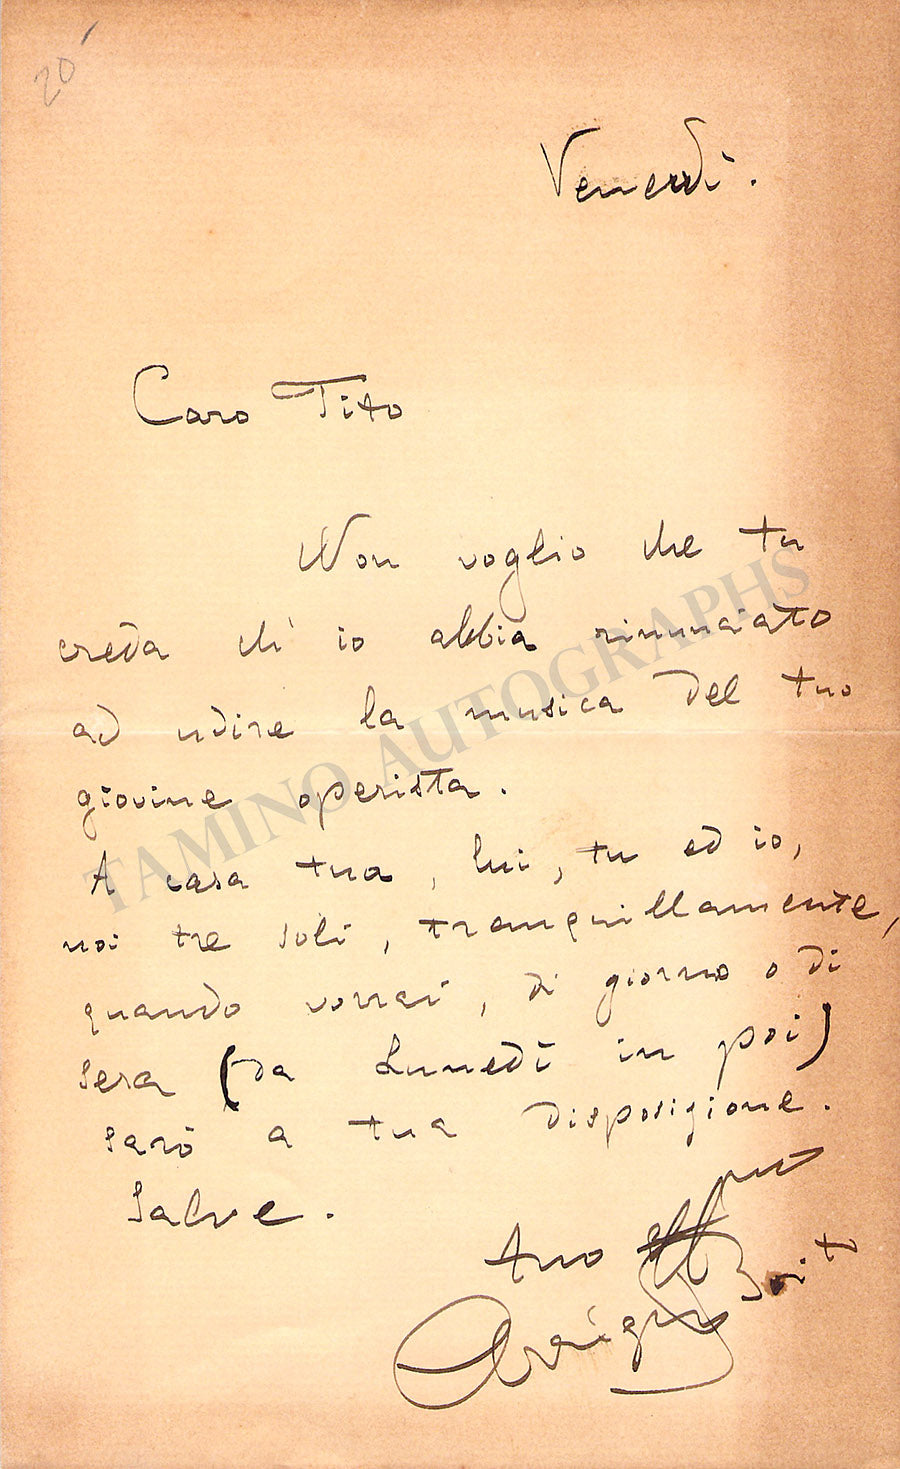 20
Venerdì.
Caro Tito
Non voglio che tu
creda ch' io abbia rinunciato
ad udire la musica del tuo
giovine operista.
A casa tua, lui, tu ed io,
noi tre soli, tranquillamente,
quando vorrai, di giorno o di
sera (da Lunedì in poi)
sarò a tua disposizione.
Salve.
tuo affmo
Arrigo Boito
TAMINO AUTOGRAPHS